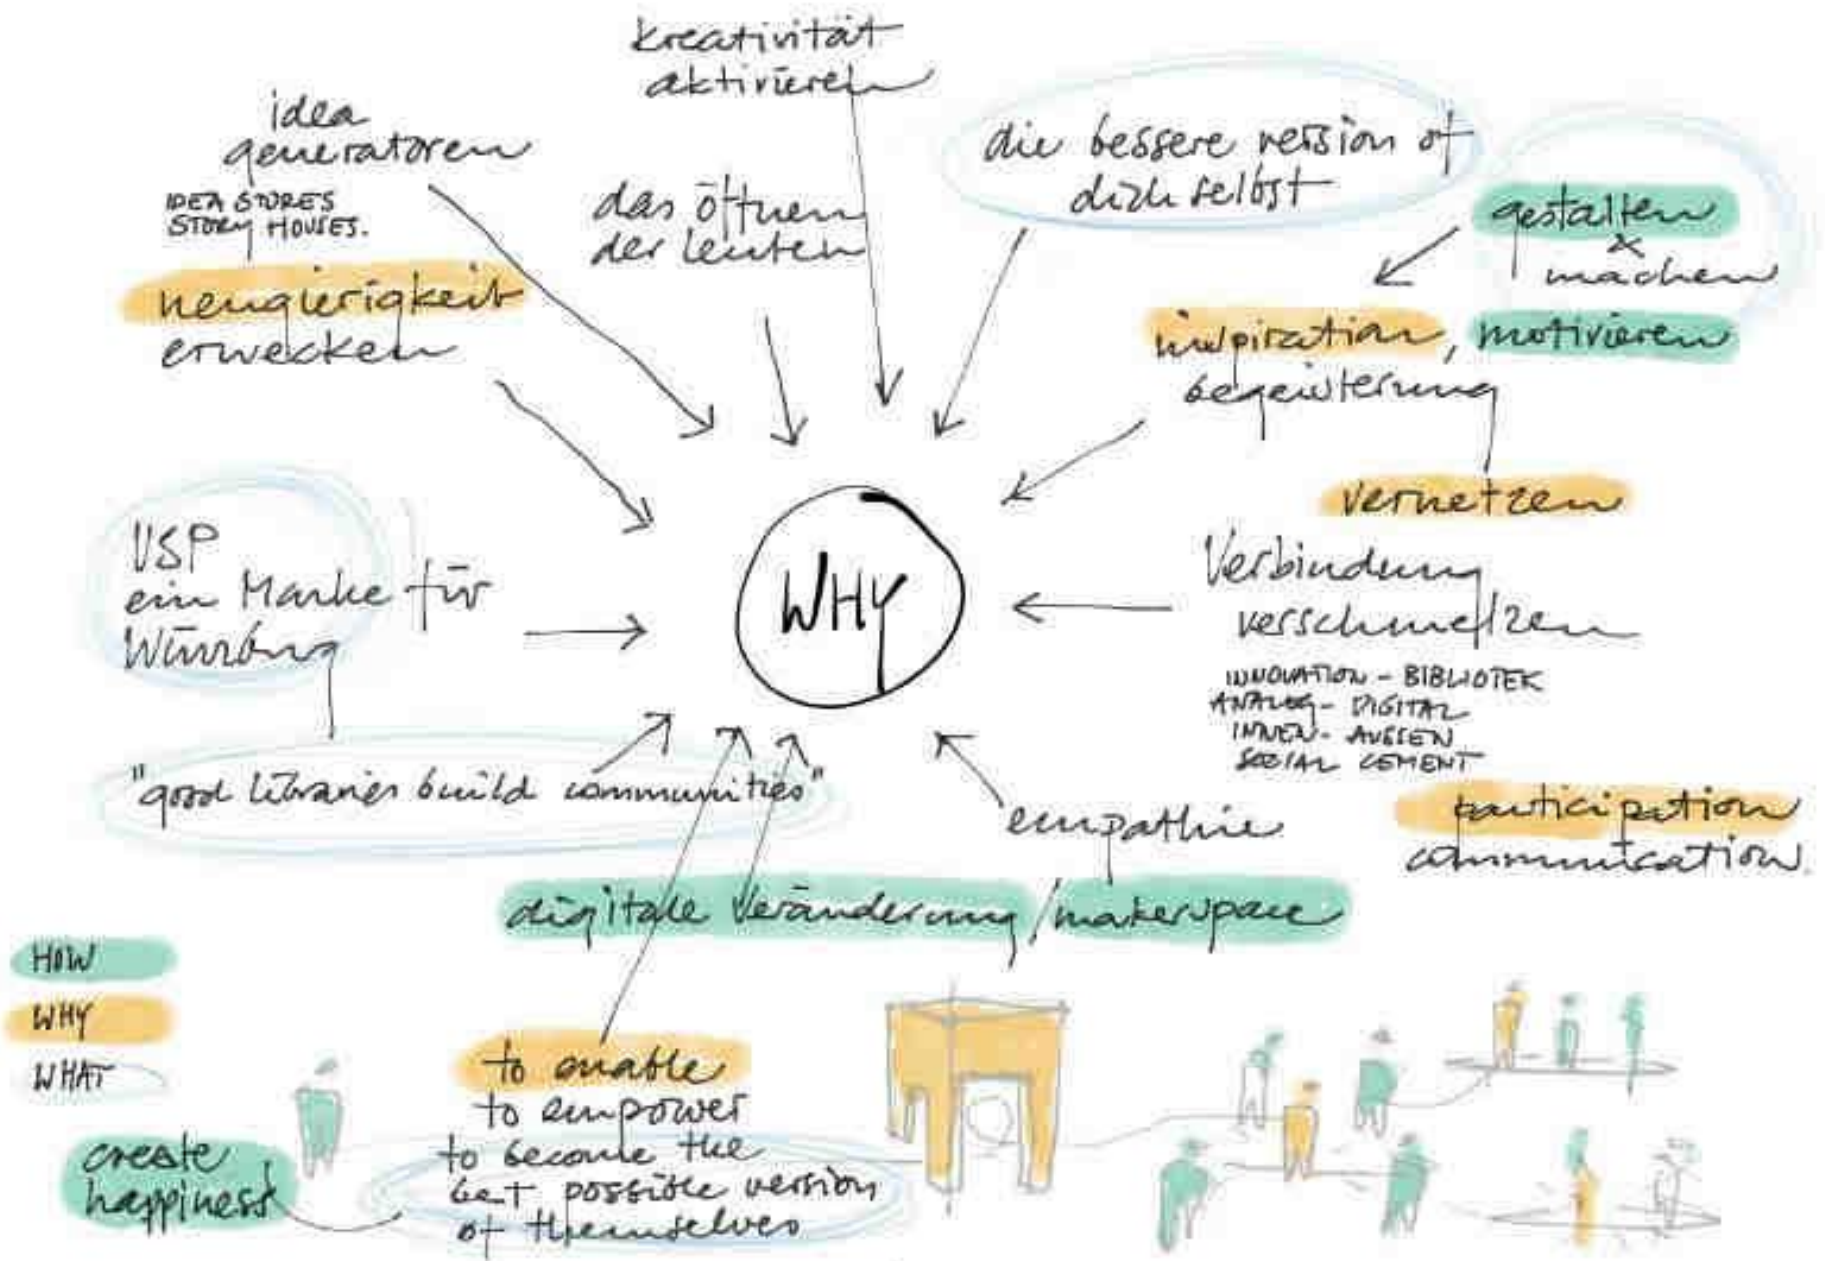 kreativität
aktivieren
idea
generatoren
IDEA STORES
STORY HOUSES.
neugierigkeit
erwecken
das öffnen
der leuten
die bessere version of
dich selbst
gestalten
&
machen
inspiration, motivieren
begeisterung
vernetzen
USP
ein Marke für
Würzburg
WHY
Verbindung
verschmelzen
INNOVATION - BIBLIOTEK
ANALOG - DIGITAL
INNEN - AUSSEN
SOCIAL CEMENT
"good libraries build communities"
empathie
participation
communication.
digitale Veränderung / makerspace
HOW
WHY
WHAT
to enable
to empower
to become the
best possible version
of themselves
create
happiness